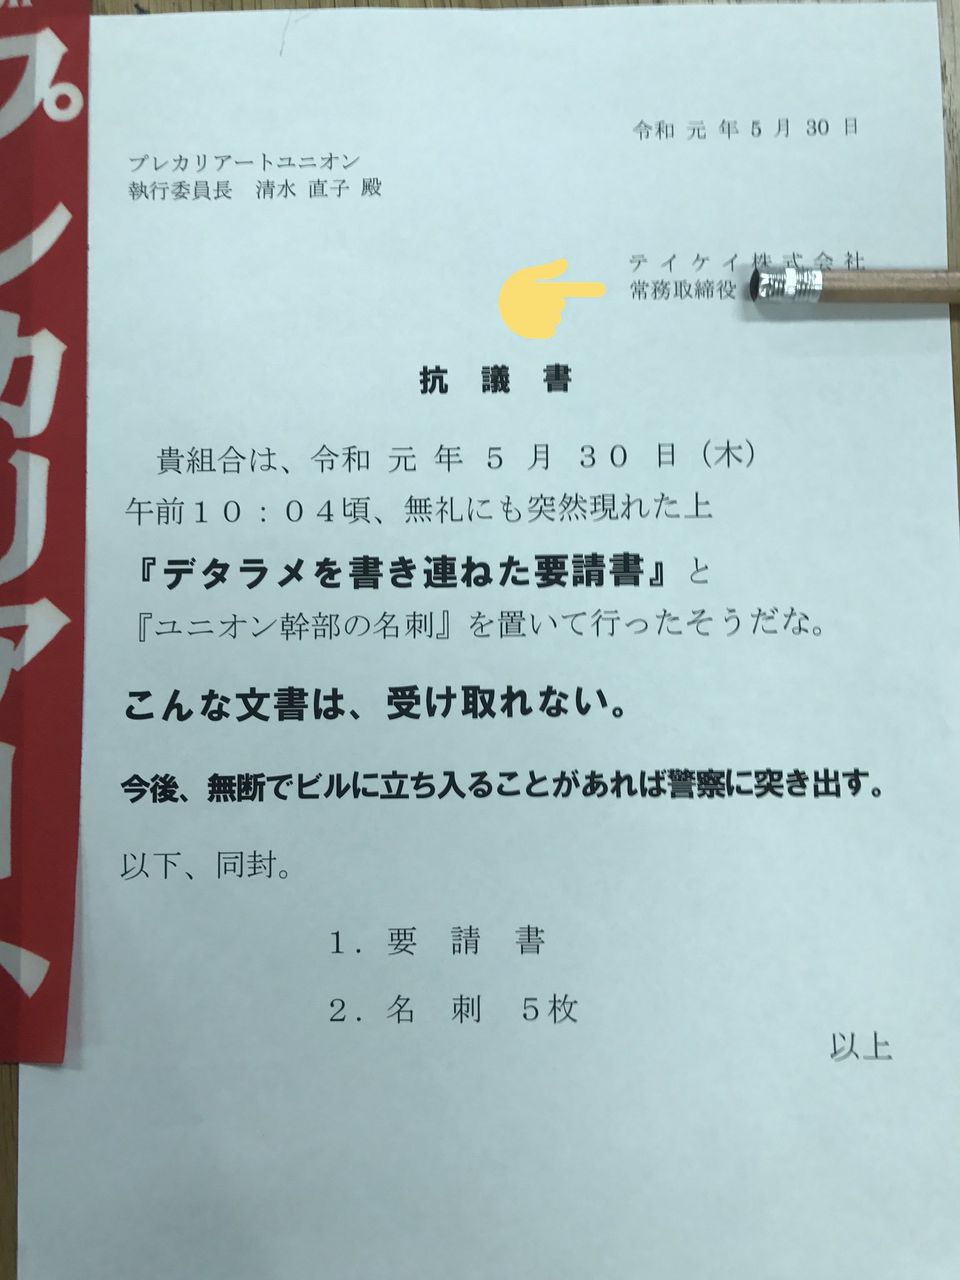 プレカリアート
令和 元 年 5 月 30 日
プレカリアートユニオン
執行委員長　清水 直子 殿
テ イ ケ イ 株 式 会 社
常務取締役
抗　議　書
貴組合は、令和 元 年 ５ 月 ３０ 日（木）
午前１０：０４頃、無礼にも突然現れた上
『デタラメを書き連ねた要請書』と
『ユニオン幹部の名刺』を置いて行ったそうだな。
こんな文書は、受け取れない。
今後、無断でビルに立ち入ることがあれば警察に突き出す。
以下、同封。
１．要　請　書
２．名　刺　５枚
以上